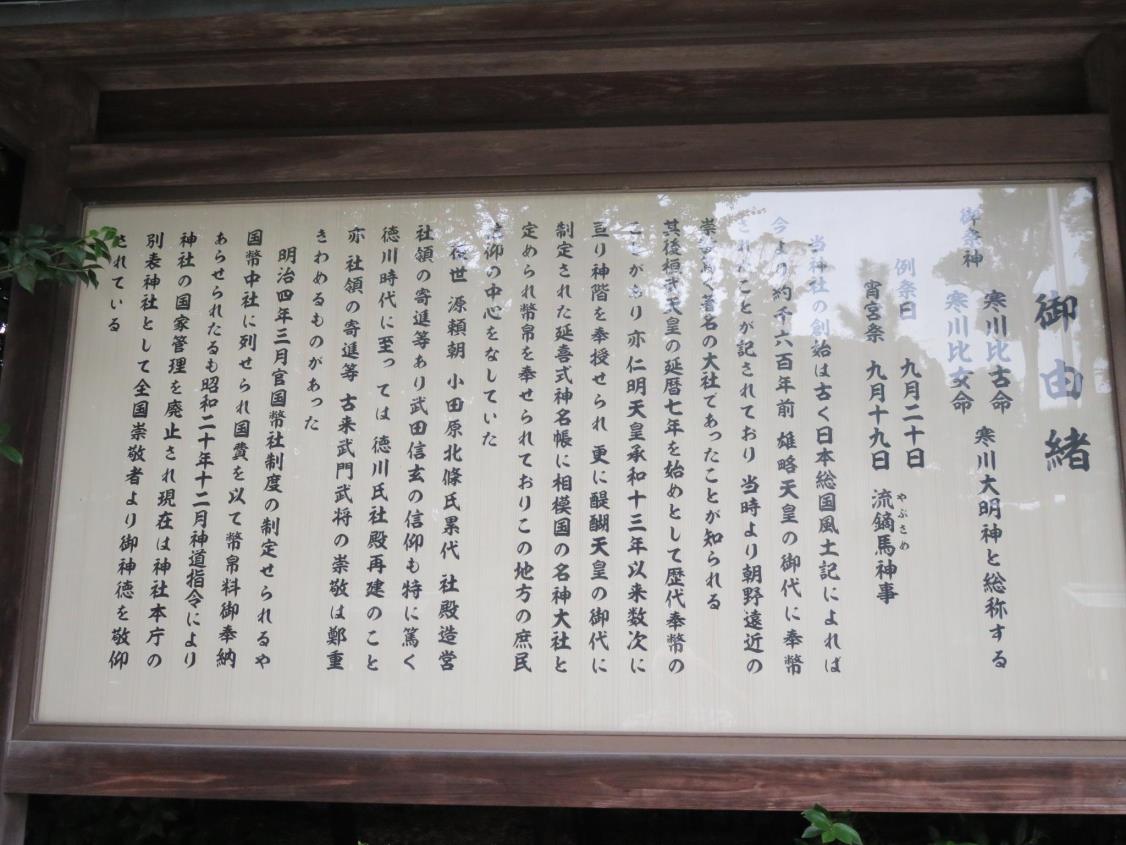 御由緒
御祭神 寒川比古命 寒川大明神と総称する
寒川比女命
例祭日 九月二十日
宵宮祭 九月十九日 流鏑馬神事
やぶさめ
当神社の創始は古く日本総国風土記によれば
今より約千六百年前 雄略天皇の御代に奉幣
されたことが記されており 当時より朝野遠近の
著名の大社であったことが知られる
其後桓武天皇の延暦七年を始めとして歴代奉幣の
ことがあり亦仁明天皇承和十三年以来数次に
亘り神階を奉授せられ 更に醍醐天皇の御代に
制定された延喜式神名帳に相模国の名神大社と
定められ幣帛を奉せられておりこの地方の庶民
信仰の中心をなしていた
後世 源頼朝 小田原北條氏累代 社殿造営
社領の寄進等あり武田信玄の信仰も特に篤く
徳川時代に至っては 徳川氏社殿再建のこと
亦 社領の寄進等 古来武門武将の崇敬は鄭重
きわめるものがあった
明治四年三月官国幣社制度の制定せられるや
国幣中社に列せられ国費を以て幣帛料御奉納
あらせられたるも昭和二十年十二月神道指令により
神社の国家管理を廃止され現在は神社本庁の
別表神社として全国崇敬者より御神徳を敬仰
されている